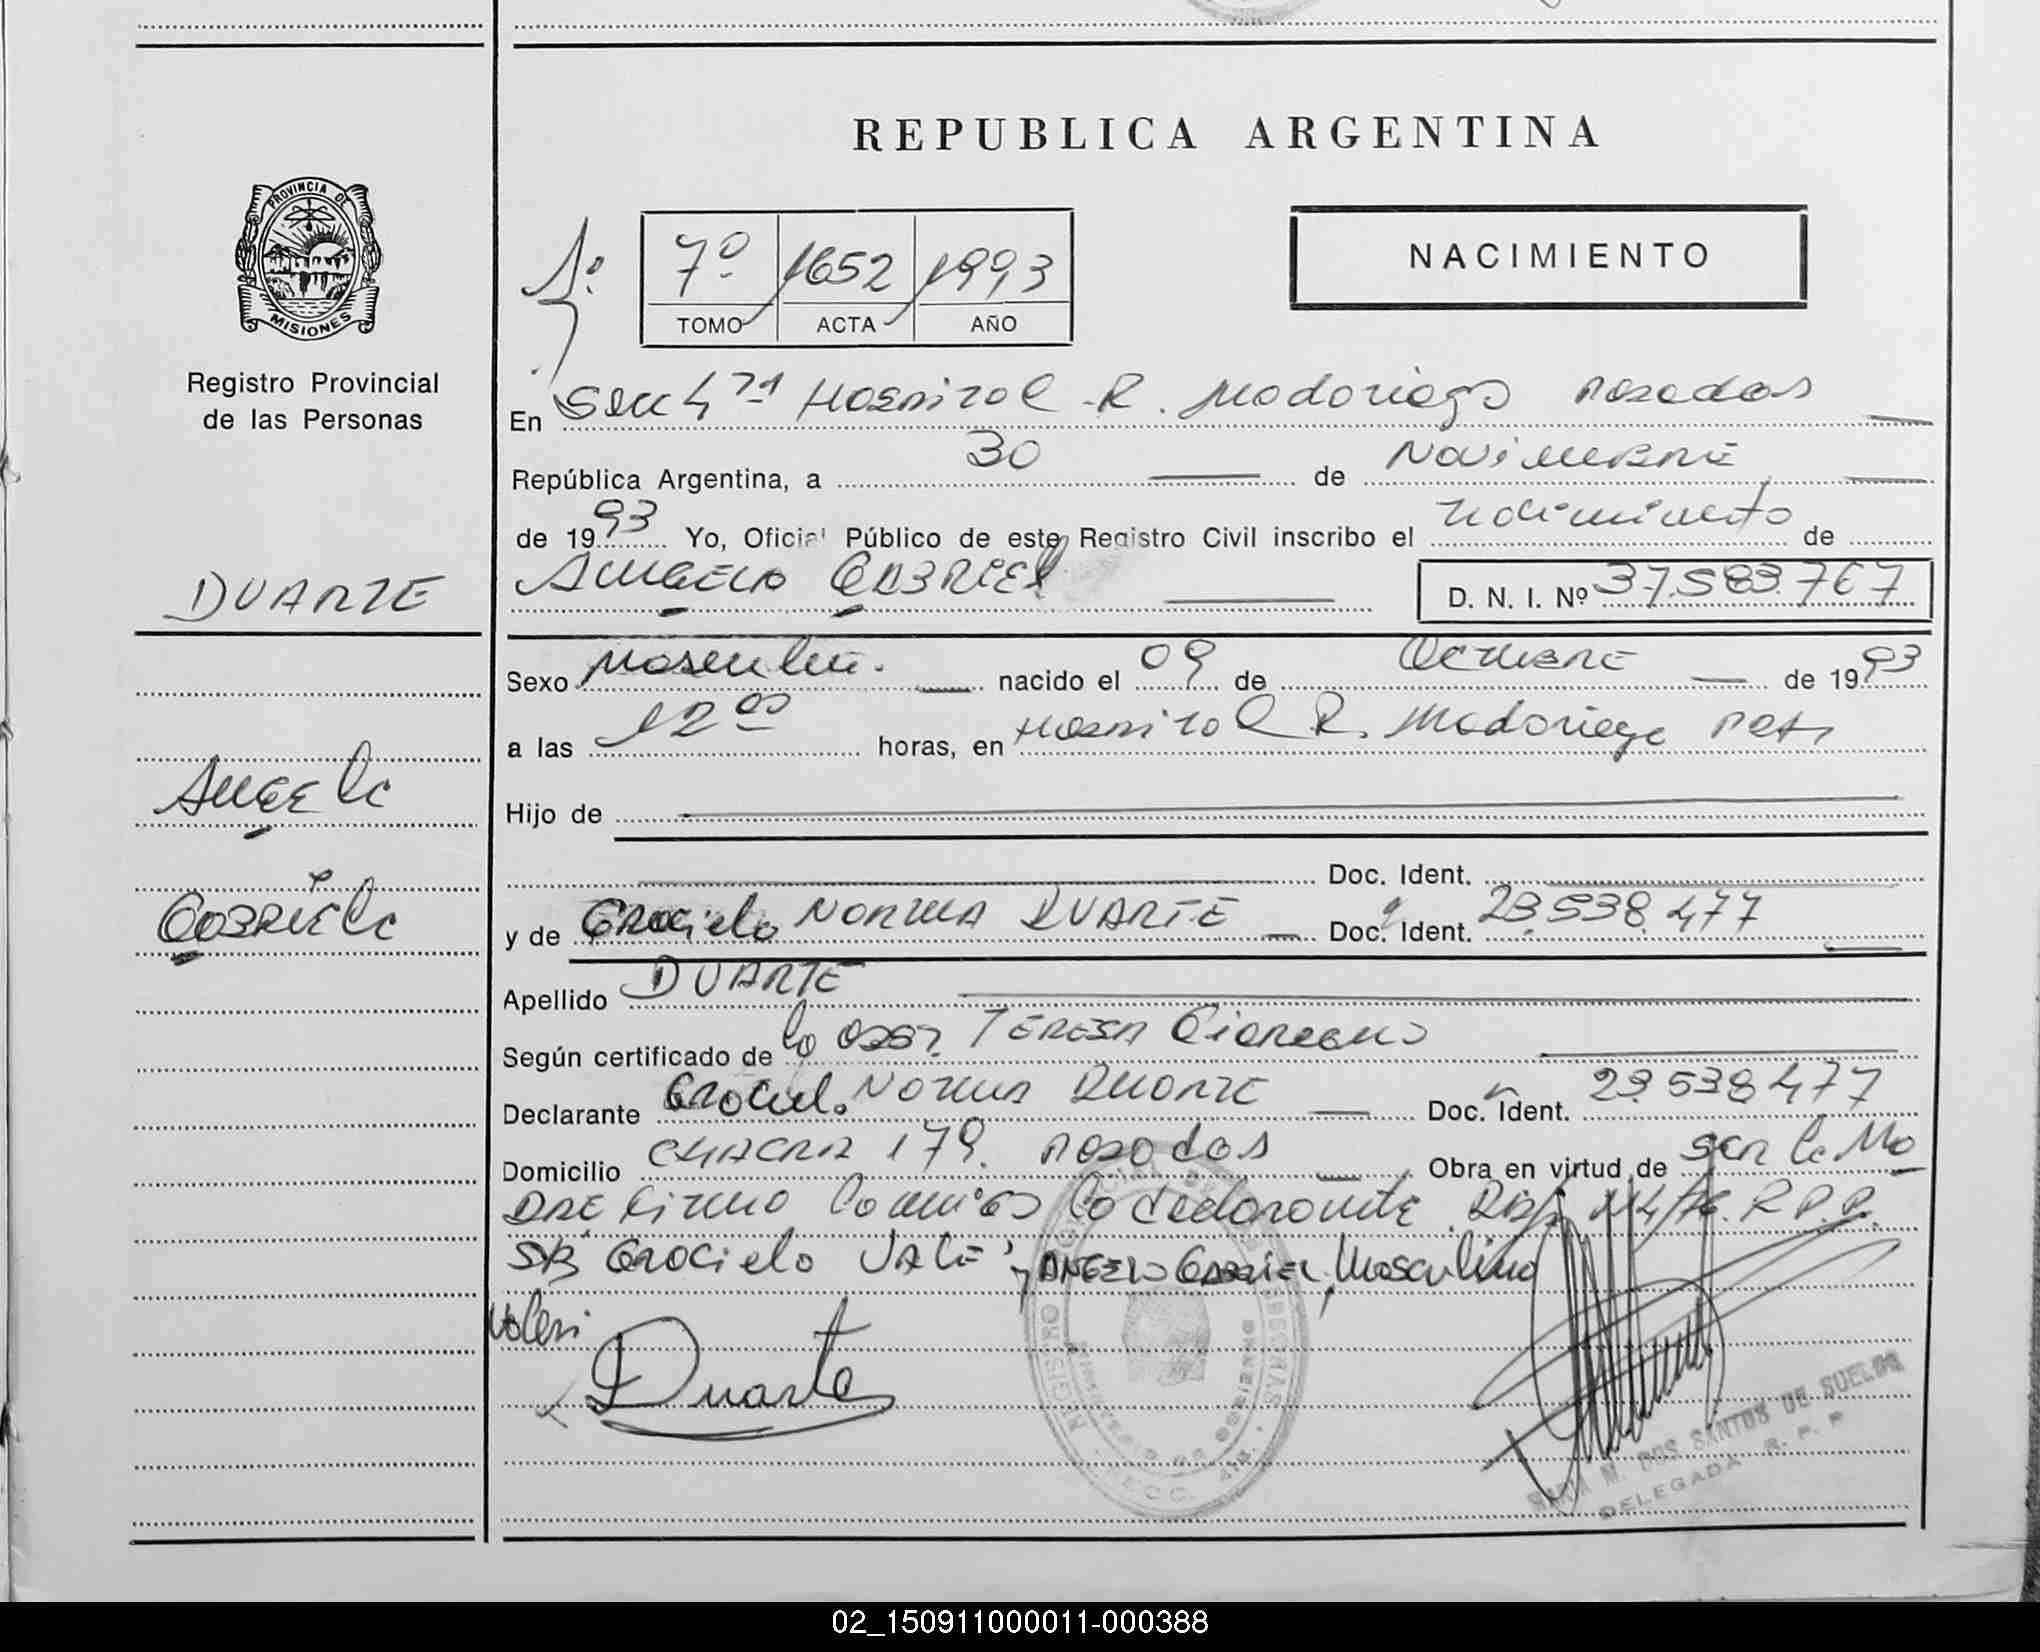 REPUBLICA ARGENTINA
PROVINCIA DE
MISIONES
Registro Provincial
de las Personas
1º
7º 1652 1993
TOMO ACTA AÑO
NACIMIENTO
En Secc 4ta Hospital R. Madariaga Posadas
República Argentina, a 30 de Noviembre
de 1993 Yo, Oficial Público de este Registro Civil inscribo el nacimiento de
DUARTE
Angelo Gabriel D. N. I. Nº 37.583.767
Sexo Masculin. nacido el 09 de Octubre de 1993
a las 12 00 horas, en Hospital R. Madariaga Pdas
Angela
Hijo de
Doc. Ident.
Gabriela
y de Graciela Norma DUARTE Doc. Ident. 23.538.477
Apellido DUARTE
Según certificado de la Obst. Teresa
Declarante Graciel. Norma Duarte Doc. Ident. 23.538.477
Domicilio CHACRA 179. Posadas Obra en virtud de ser la Ma
dre firma conmigo la declarante Disp. R.P.P.
S/B Graciela VALE, ANGELO GABRIEL, Masculino
Valen
Duarte
REGISTRO PERSONAS
MINISTERIO DE GOBIERNO
MARIA M. DOS SANTOS DE SUELDO
DELEGADA R. P. P
02_150911000011-000388